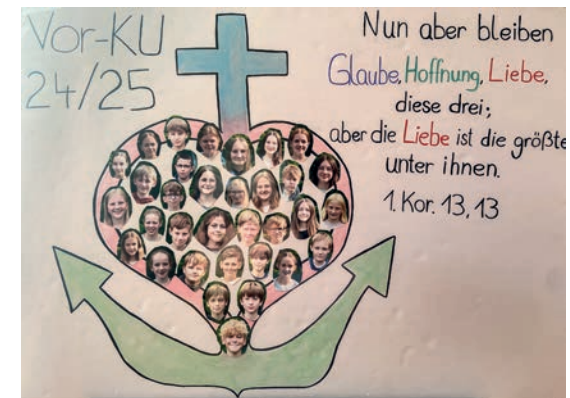 Vor-KU
24/25
Nun aber bleiben
Glaube, Hoffnung, Liebe,
diese drei;
aber die Liebe ist die größte
unter ihnen.
1. Kor. 13, 13